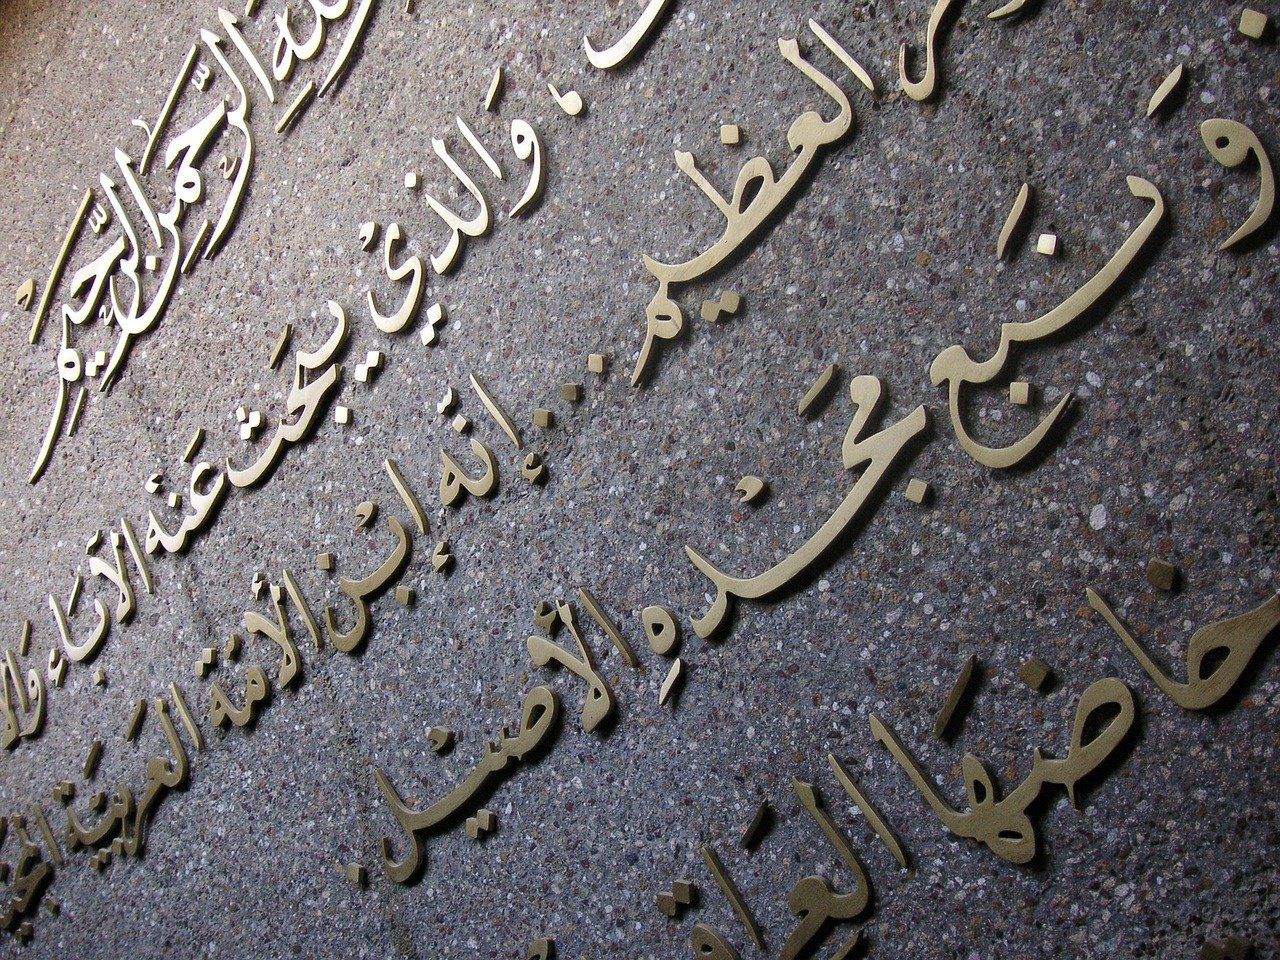 الرَّحمنِ الرَّحِيمِ
وَالذيْ يبحَث عَنه الآبَاء
العظيم ... إنه ابْن الأمَة العَربيَة
وَنَبع مَجْدِهِ الأصيْل .
خاضَها